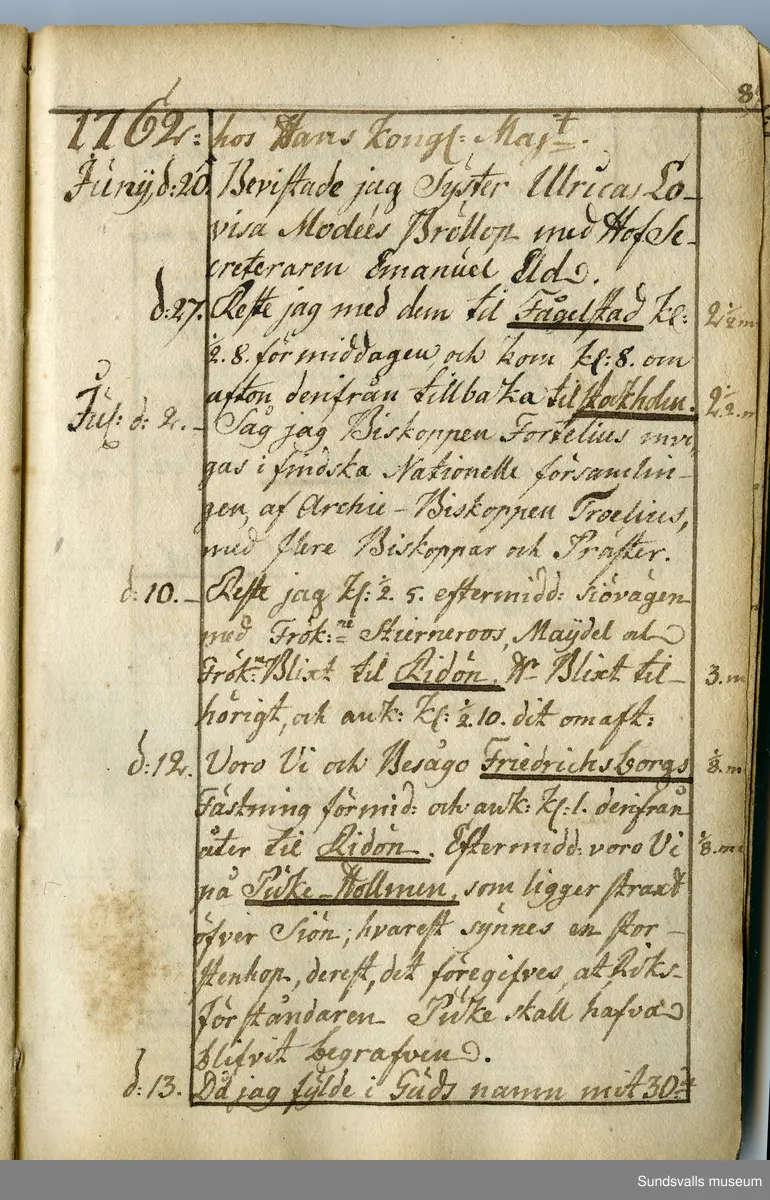 8
1762: hos Hans Kongl: Maj:t.
Junij d: 20. Bevistade jag Syster Ulricas Lo-
visa Modées Bröllop med Hof Se-
creteraren Emanuel Eld.
d: 27. Reste jag med dem til Fågelstad kl: 2½ m
½. 8. förmiddagen, och kom kl: 8. om
afton derifrån tillbaka til Stockholm. 2½. m
Jul: d: 2. - Såg jag Biskoppen Fortelius invi-
gas i findska Nationelle församlin-
gen, af Archie-Biskoppen Troelius,
med flere Biskoppar och Präster.
d: 10. - Reste jag kl: ½. 5. eftermidd: siövägen
med Frök:ne Stierneroos, Maÿdel och
Frök:n Blixt til Ridön, Hr Blixt til- 3. m
hörigt, och ank: kl: ½. 10. dit om aft:
d: 12. Voro Vi och Besågo Friedrichsborgs ⅛. m
Fästning förmid: och ank: kl: 1. derifrån
åter til Ridön. Eftermidd: voro Vi ⅛. m
på Puke-Hollmen, som ligger straxt
öfver Siön; hvarest synnes en stor-
stenhop, derest, det föregifves, at Riks-
förståndaren Puke skall hafva
blifvit begrafven.
d: 13. Då jag fylde i Guds namn mit 30:de
Sundsvalls museum